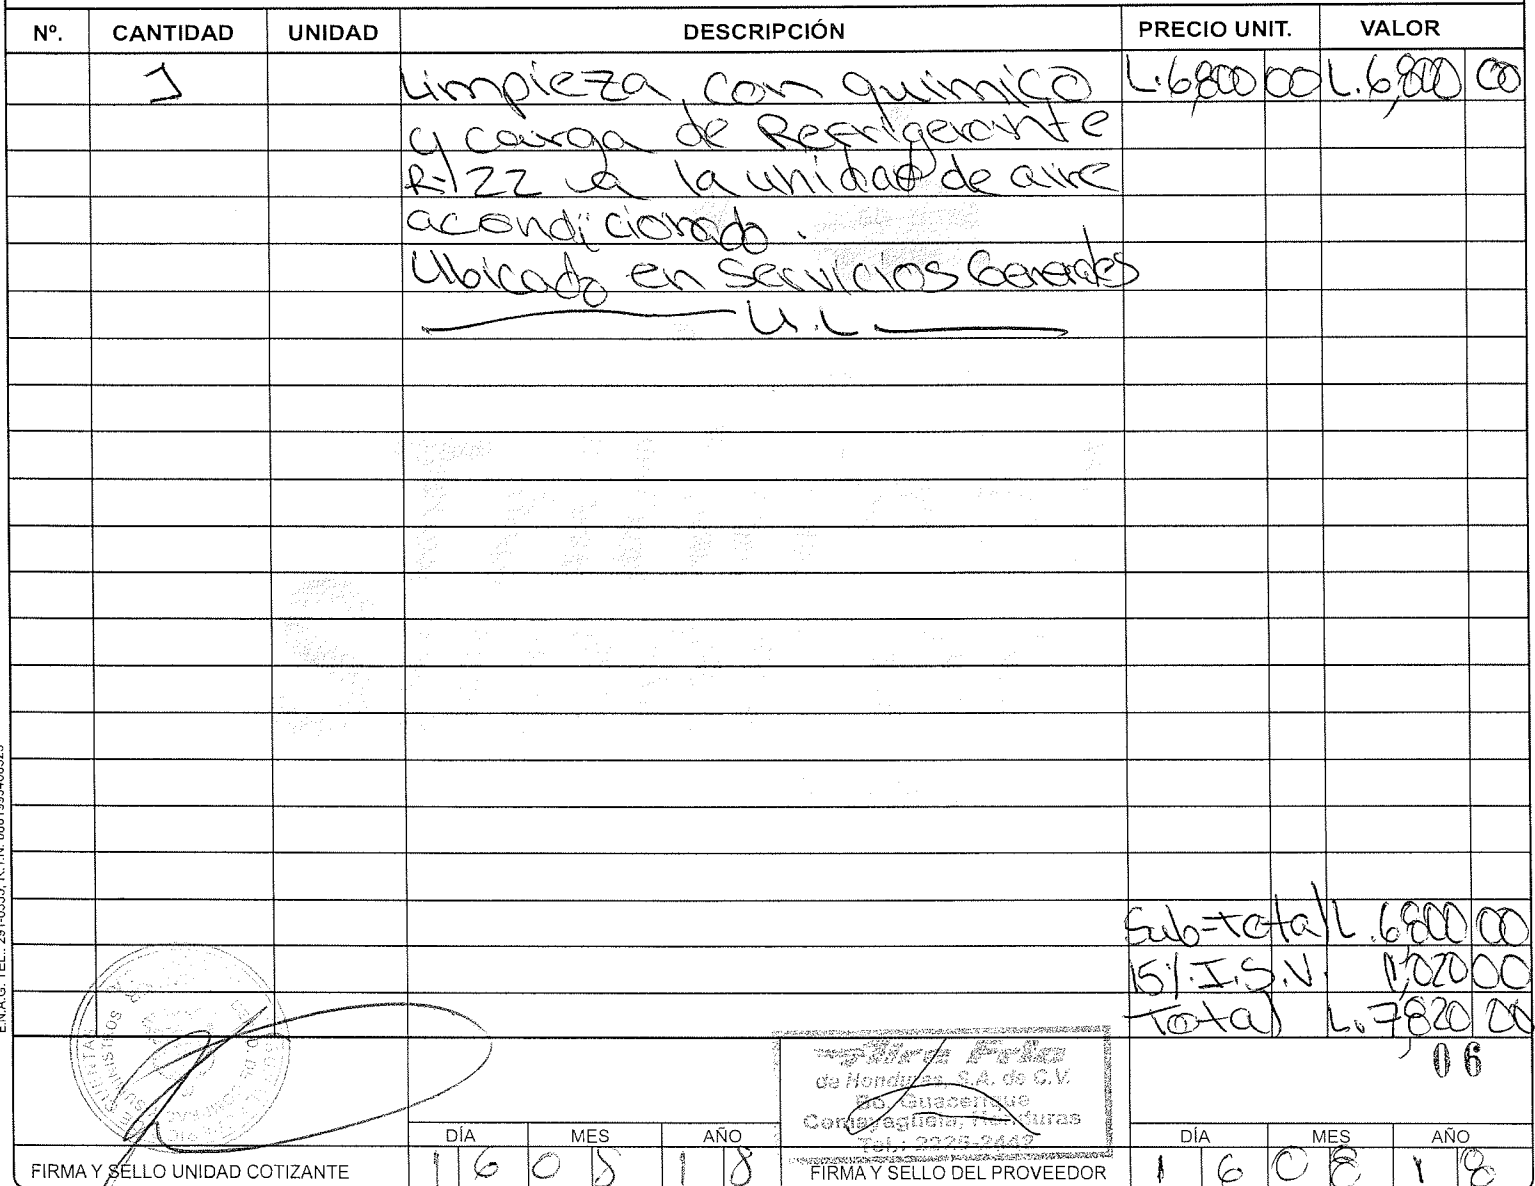 Nº. CANTIDAD UNIDAD DESCRIPCIÓN PRECIO UNIT. VALOR
1 Limpieza con quimico L.6,800 00 L.6,800 00
y carga de Refrigerante
R-122 a la unidad de aire
acondicionado.
Ubicado en Servicios Generales
U.L.
Sub-total L.6,800 00
15% I.S.V. 1,020 00
Total L.7,820 00
06
Aire Frio
de Honduras, S.A. de C.V.
Bo. Guacerique
Comayagüela, Honduras
Tel.: 2225-2442
DÍA MES AÑO DÍA MES AÑO
FIRMA Y SELLO UNIDAD COTIZANTE 16 08 18 FIRMA Y SELLO DEL PROVEEDOR 16 08 18